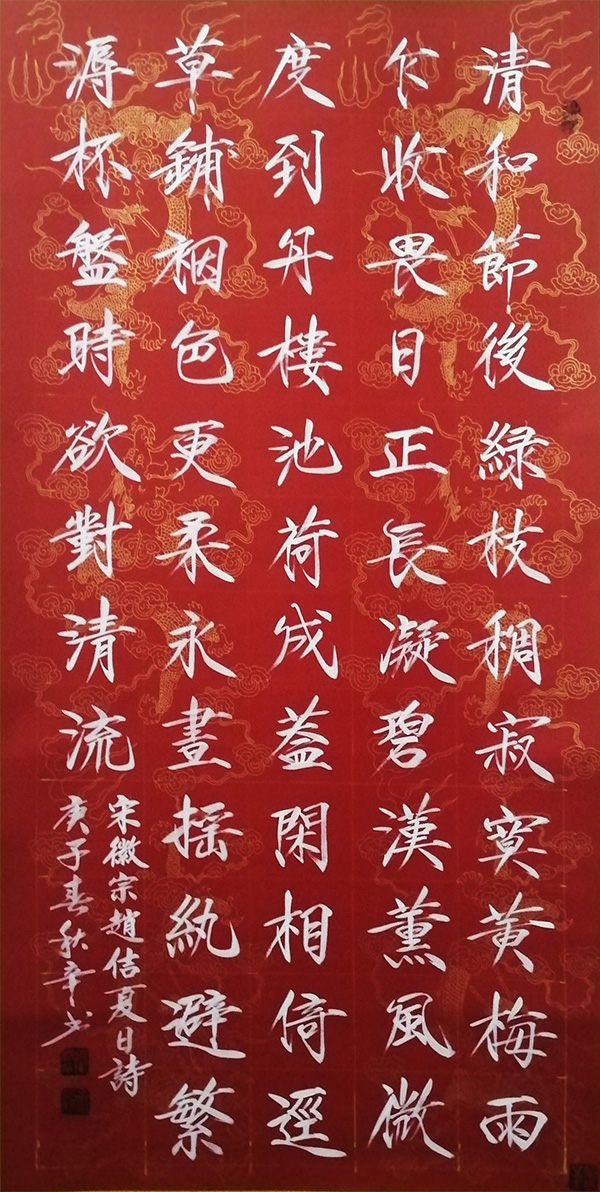 清和節後緑枝稠寂寞黄梅雨
乍收畏日正長凝碧漢薰風微
度到丹樓池荷成蓋閑相倚逕
草鋪裀色更柔永晝摇紈避繁
溽杯盤時欲對清流
宋徽宗趙佶夏日詩
庚子春秋辛书